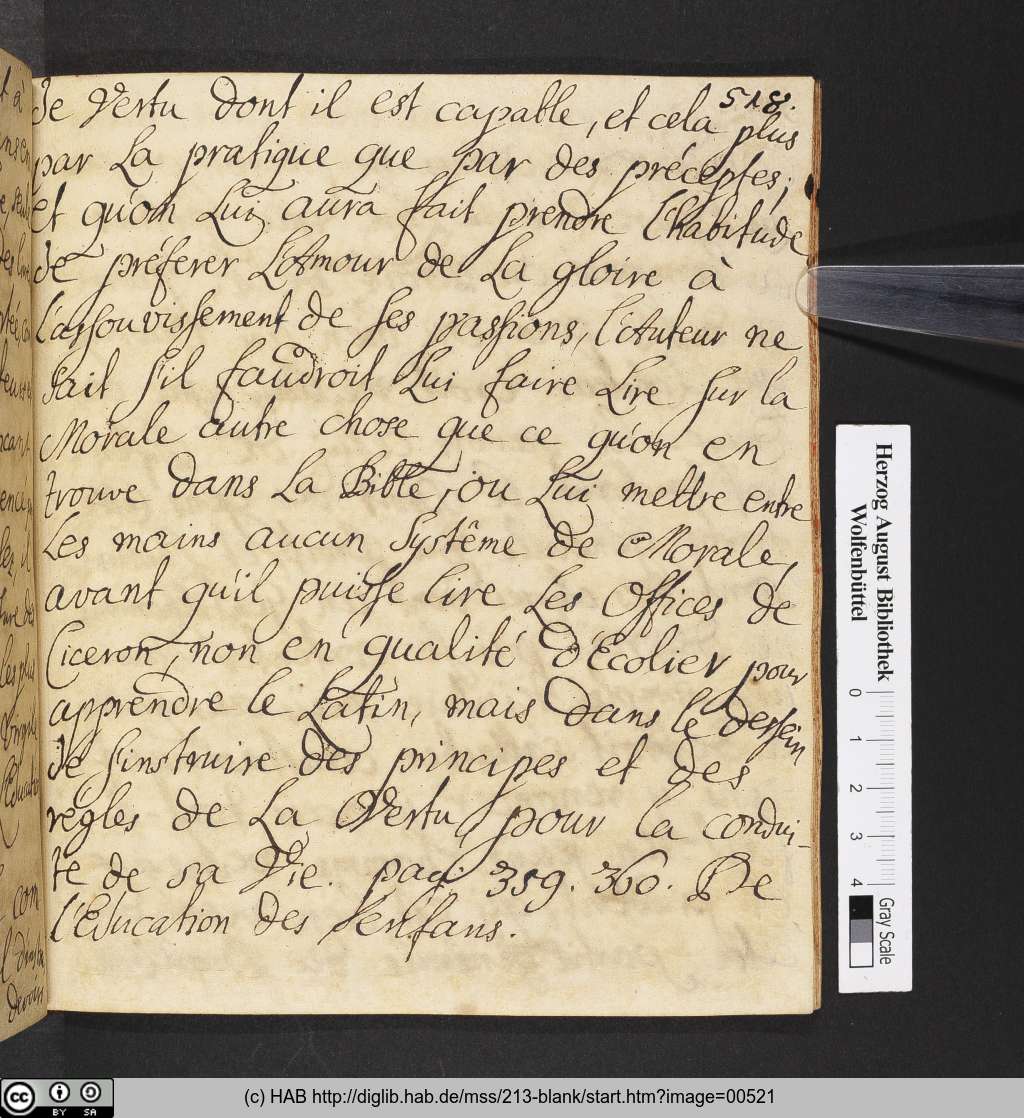 518.
de Vertu dont il est capable, et cela plus
par La pratique que par des préceptes;
et qu'on Lui aura fait prendre l'habitude
de préferer L'Amour de La gloire à
l'assouvissement de ses passions, l'Auteur ne
sait s'il faudroit Lui faire Lire sur la
Morale autre chose que ce qu'on en
trouve dans La Bible, ou Lui mettre entre
Les mains aucun Systême de Morale,
avant qu'il puisse lire Les Offices de
Ciceron, non en qualité d'Ecolier pour
apprendre le Latin, mais dans le dessein
de s'instruire des principes et des
regles de La Vertu pour la condui-
te de sa Vie. pag. 359. 360. De
l'Education des Enfans.
Herzog August Bibliothek
Wolfenbüttel
0 1 2 3 4
Gray Scale
cc BY SA
(c) HAB http://diglib.hab.de/mss/213-blank/start.htm?image=00521